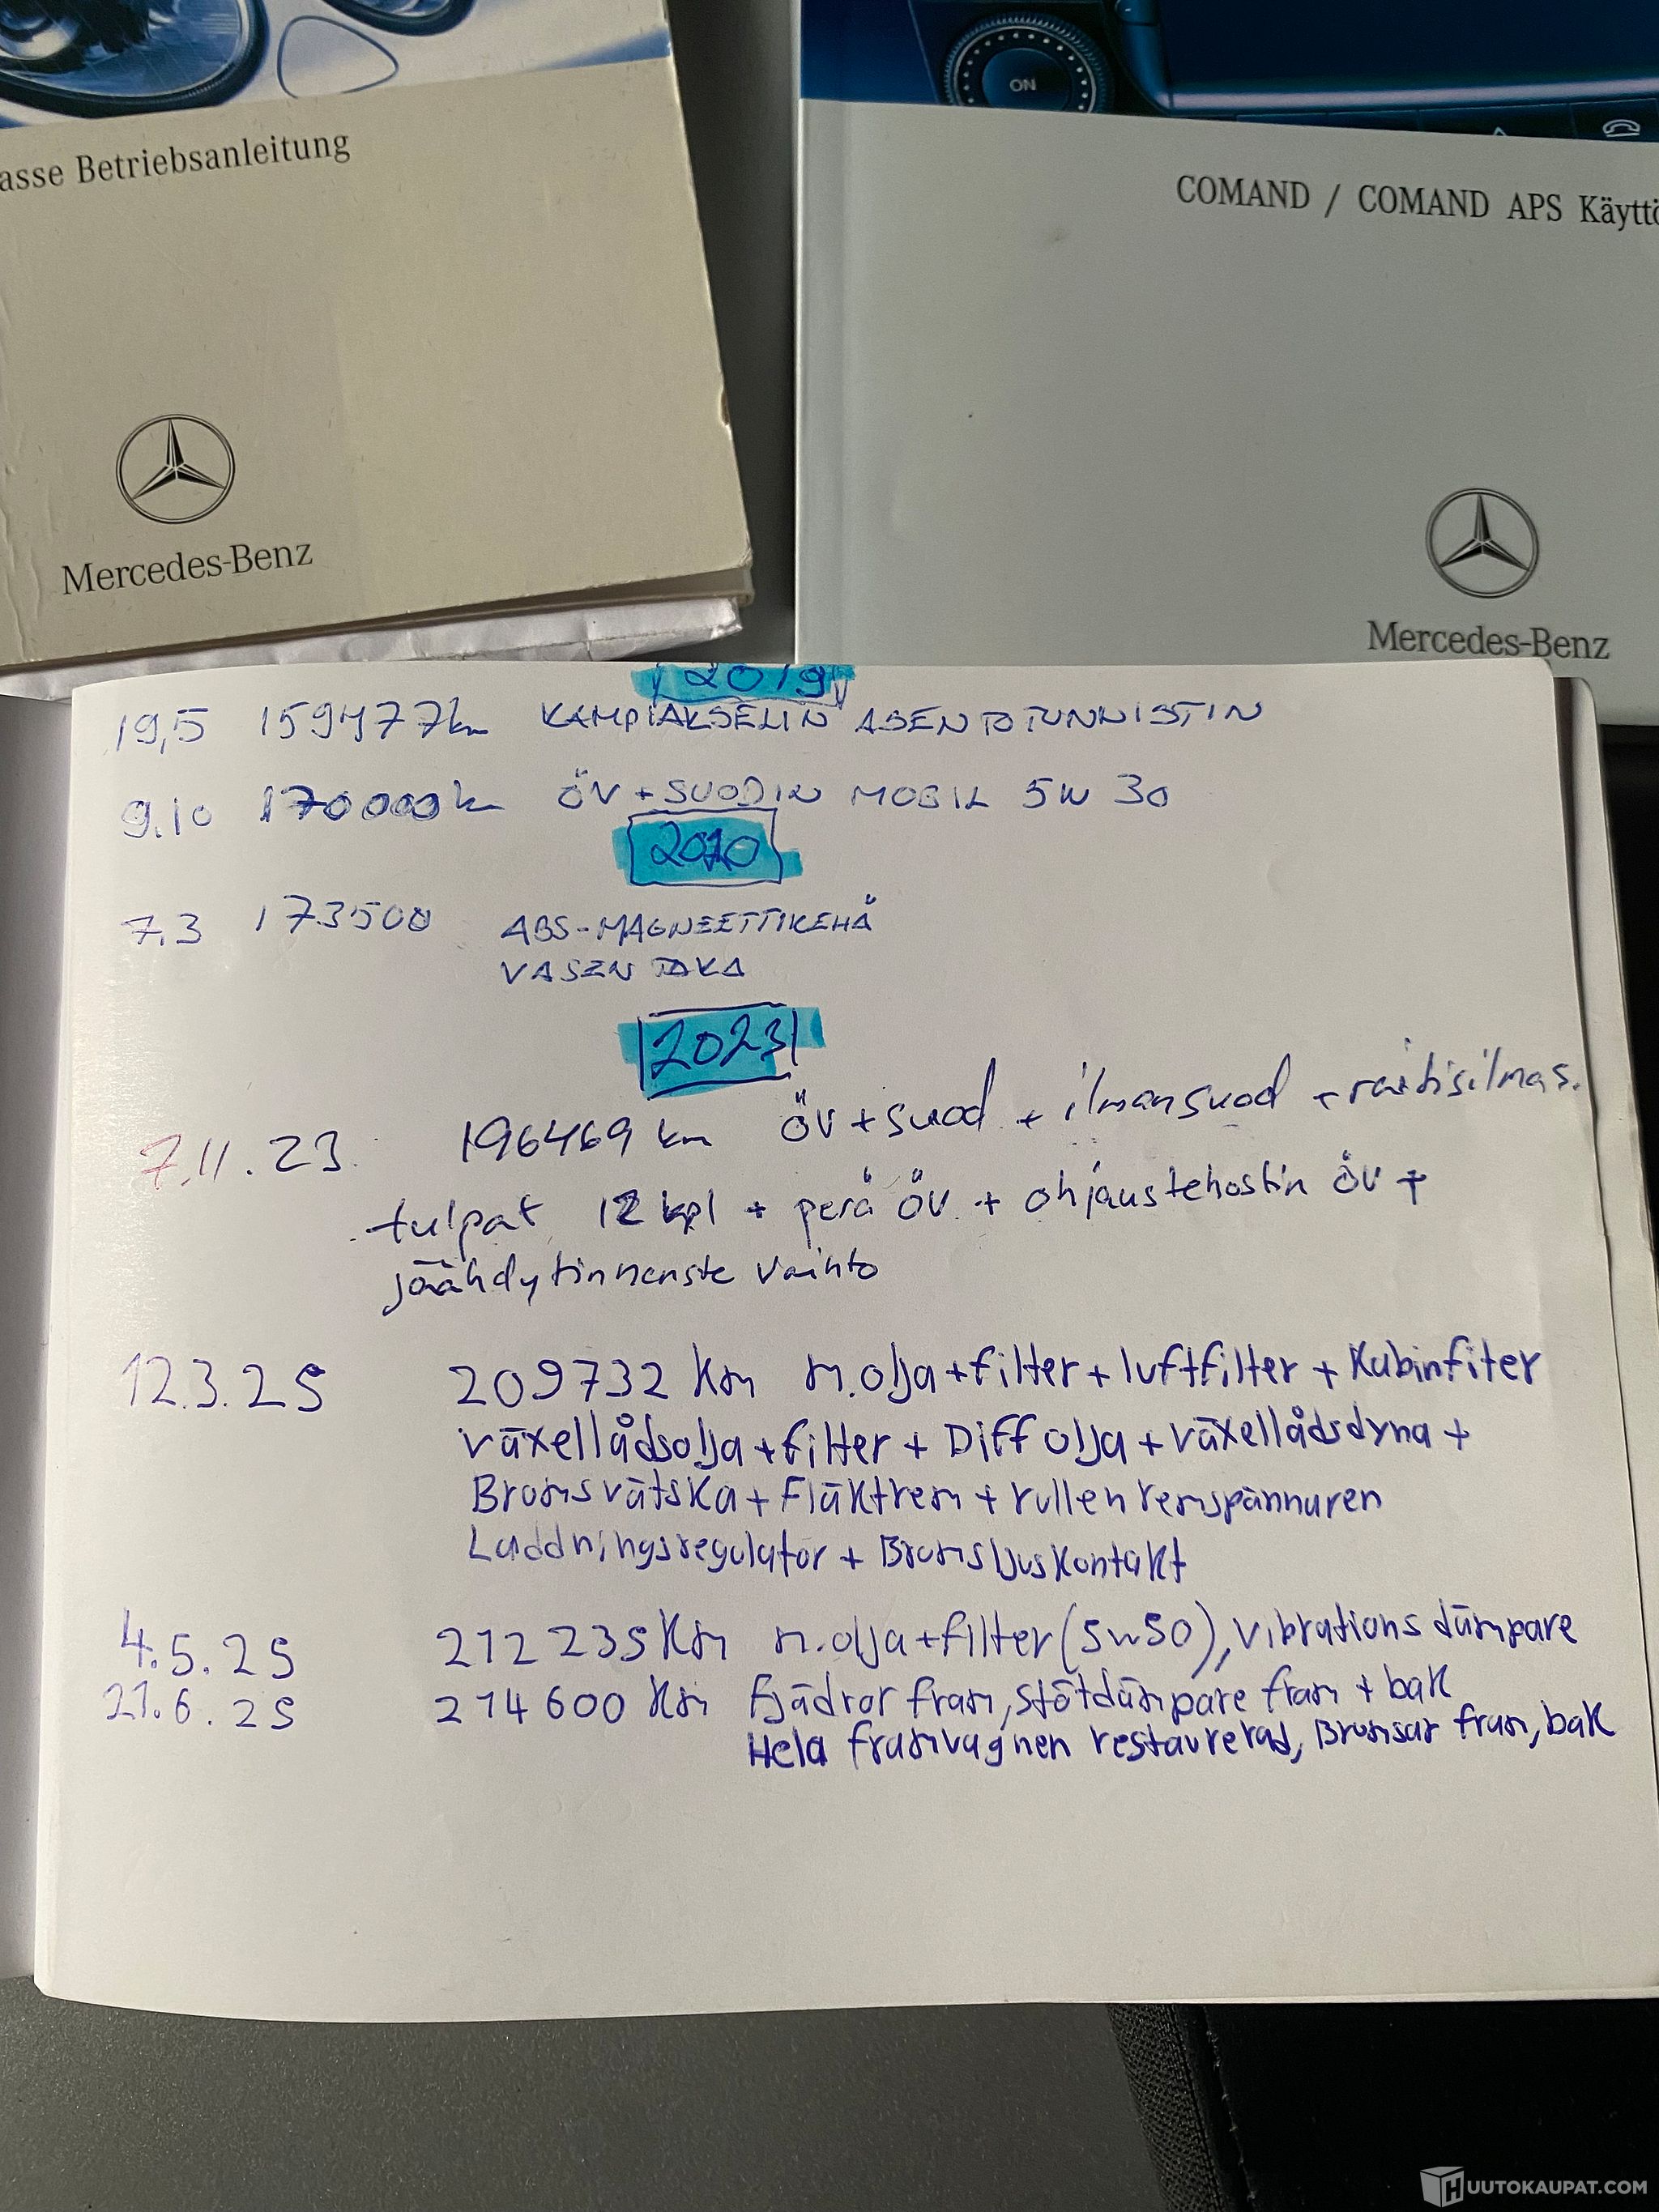 asse Betriebsanleitung
Mercedes-Benz
ON
COMAND / COMAND APS Käyttö
Mercedes-Benz
2019
19,5 159477km KAMPIAKSELIN ASENTOTUNNISTIN
9.10 170000k ÖV + SUODIN MOBIL 5W 30
2020
7.3 173500 ABS-MAGNEETTIKEHÄ
VASEN TAKA
2023
7.11.23. 196469 km ÖV + suod + ilmansuod + raitisilmas.
tulpat 12 kpl + perä ÖV + ohjaustehostin ÖV +
jäähdytinneste vaihto
12.3.25 209732 Km m.olja + filter + luftfilter + Kubinfiter
växellådsolja + filter + Diff olja + växellådsdyna +
Bromsvätska + Fläktrem + rullen remspännaren
Laddningsregulator + Bromsljuskontakt
4.5.25 212235 Km m.olja + filter (5w50), vibrationsdämpare
21.6.25 214600 Km Fjädror fram, stötdämpare fram + bak
Hela framvagnen restaurerad, Bromsar fram, bak
HUUTOKAUPAT.COM